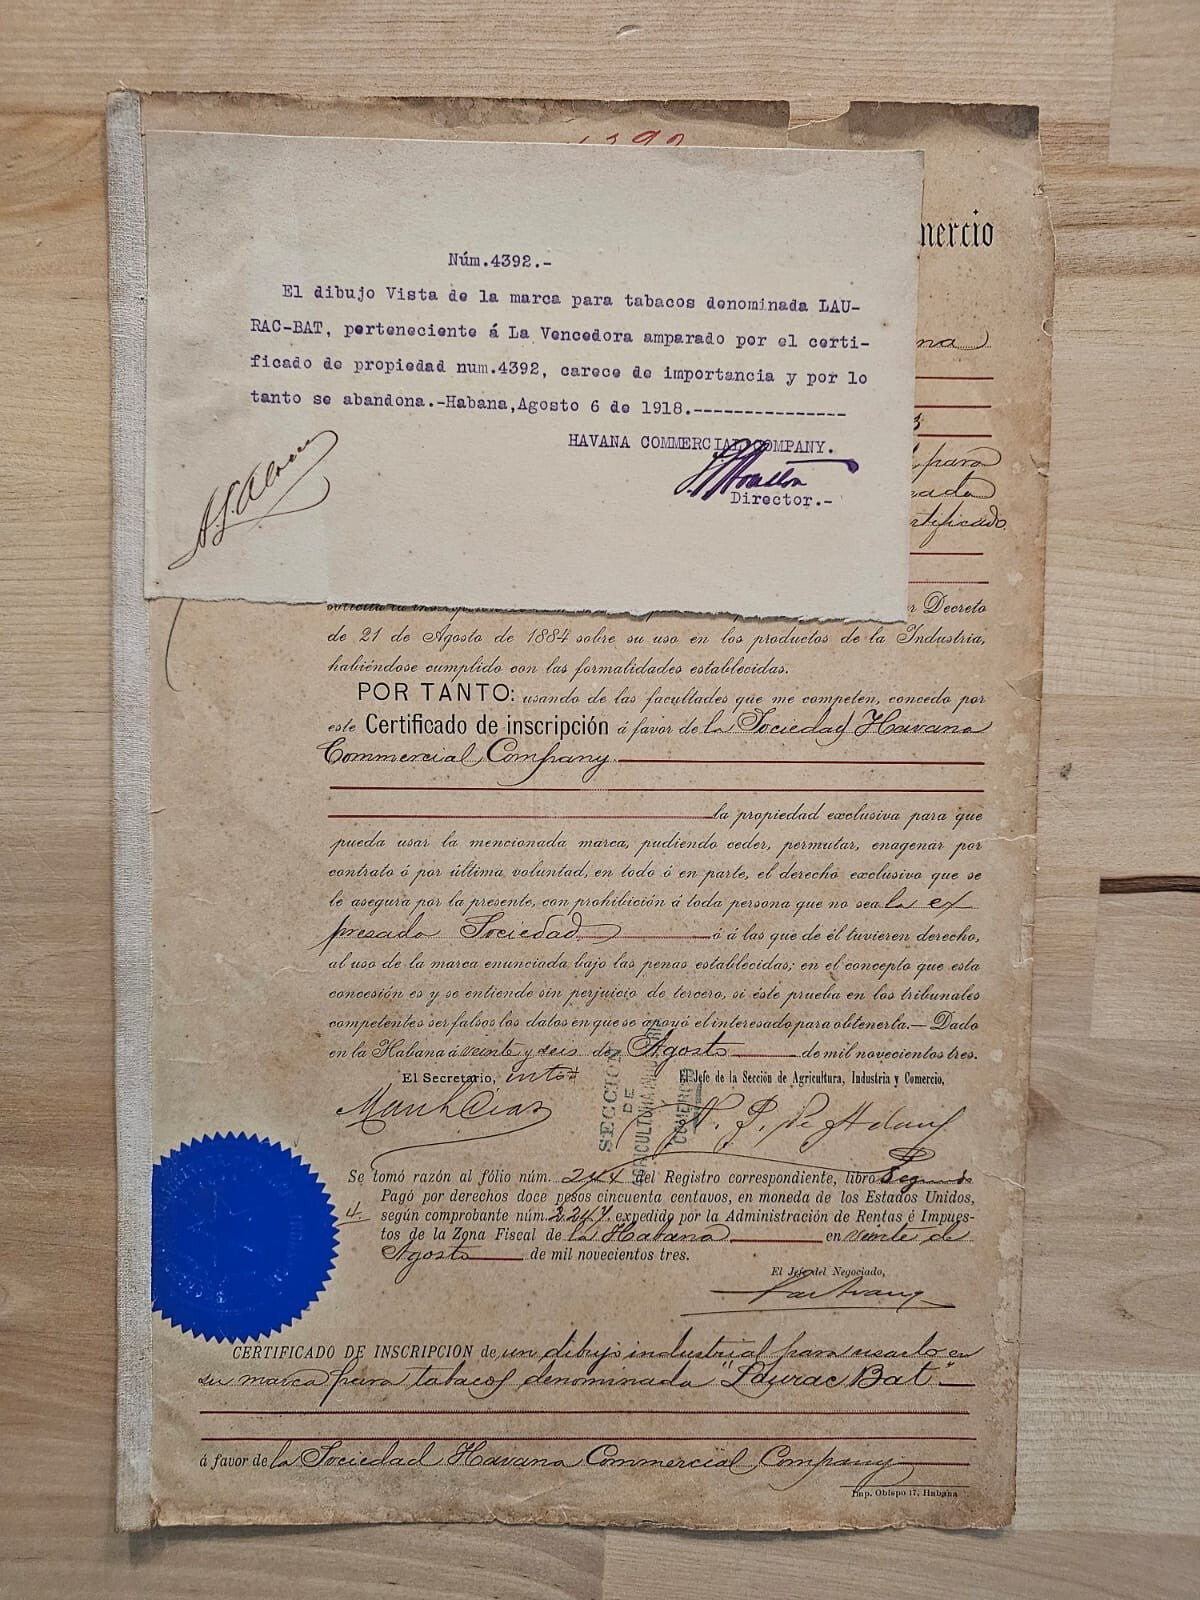 4392
mercio
Núm.4392.-
El dibujo Vista de la marca para tabacos denominada LAU-
RAC-BAT, perteneciente á La Vencedora amparado por el certi-
ficado de propiedad num.4392, carece de importancia y por lo
tanto se abandona.-Habana,Agosto 6 de 1918.---------------
HAVANA COMMERCIAL COMPANY.
Director.-
na
3
para
nada
rtificado
r Decreto
de 21 de Agosto de 1884 sobre su uso en los productos de la Industria,
habiéndose cumplido con las formalidades establecidas.
POR TANTO: usando de las facultades que me competen, concedo por
este Certificado de inscripción á favor de la Sociedad Havana
Commercial Company.
la propiedad exclusiva para que
pueda usar la mencionada marca, pudiendo ceder, permutar, enagenar por
contrato ó por última voluntad, en todo ó en parte, el derecho exclusivo que se
le asegura por la presente, con prohibición á toda persona que no sea la ex
presada Sociedad ó á las que de él tuvieren derecho,
al uso de la marca enunciada bajo las penas establecidas; en el concepto que esta
concesión es y se entiende sin perjuicio de tercero, si éste prueba en los tribunales
competentes ser falsos los datos en que se apoyó el interesado para obtenerla.— Dado
en la Habana á veinte y seis de Agosto de mil novecientos tres.
El Secretario, intº El Jefe de la Sección de Agricultura, Industria y Comercio,
SECCION
DE
AGRICULTURA INDUSTRIA
COMERCIO
Se tomó razón al fólio núm. 244 del Registro correspondiente, libro Segundo
Pagó por derechos doce pesos cincuenta centavos, en moneda de los Estados Unidos,
4. según comprobante núm. 2247. expedido por la Administración de Rentas é Impues-
tos de la Zona Fiscal de la Habana en veinte de
Agosto de mil novecientos tres.
El Jefe del Negociado,
CERTIFICADO DE INSCRIPCION de un dibujo industrial para usarlo en
su marca para tabacos denominada "Laurac Bat".
á favor de la Sociedad Havana Commercial Company
Imp. Obispo 17, Habana